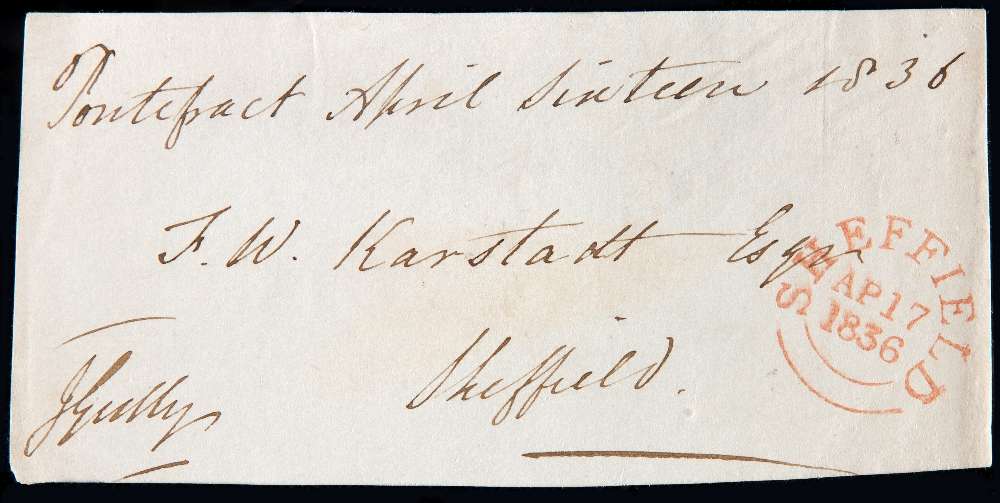 Pontefract April Sixteen 1836
F. W. Karstadt Esqr
SHEFFIELD
AP 17
1836
Sheffield.
JGully